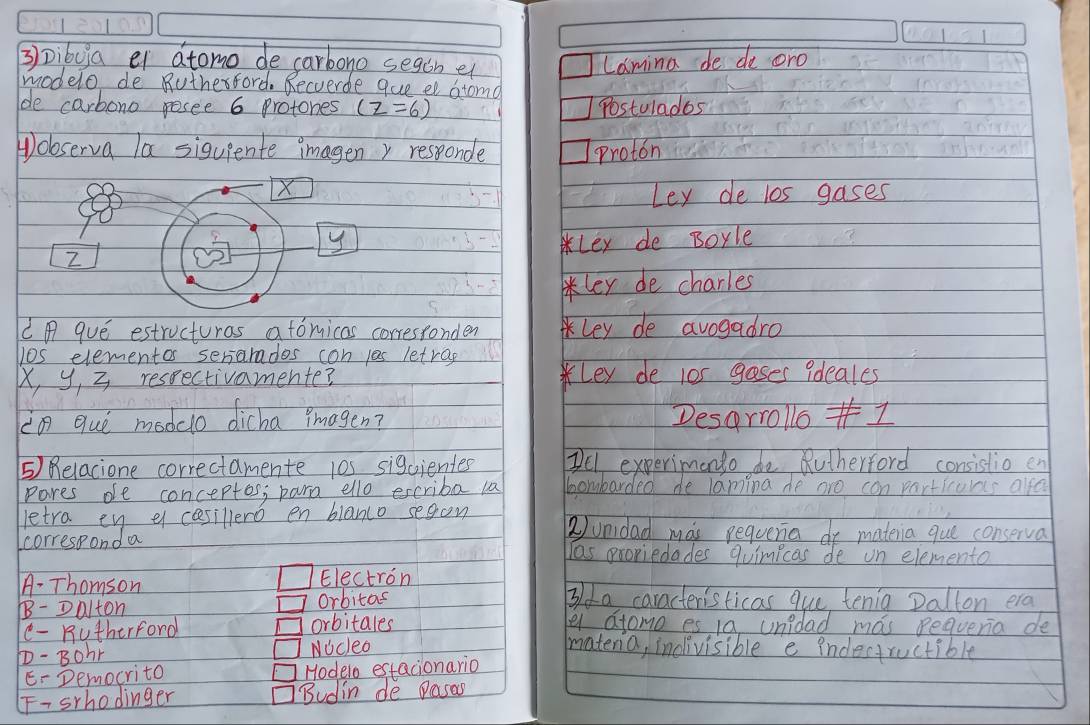 3) Dibuja el átomo de carbono según el
modelo de Rutherford. Recuerde que el átomo
de carbono posee 6 protones (Z=6)
4) observa la siguiente imagen y responde
X
y
Z
¿A qué estructuras atómicas corresponden
los elementos señalados con las letras
X, y, Z, respectivamente?
¿A qué modelo dicha imagen?
5) Relacione correctamente los siguientes
pares de conceptos; para ello escriba la
letra en el casillero en blanco segun
corresponda
A- Thomson
B- Dalton
C- Rutherford
D- Bohr
E- Democrito
F- srhodinger
Electrón
Orbitas
Orbitales
Núcleo
Modelo estacionario
Budín de pasas
Lámina de de oro
Postulados
Protón
Ley de los gases
*Ley de Boyle
*Ley de charles
*Ley de avogadro
*Ley de los gases ideales
Desarrollo #1
1) El experimento de Rutherford consistio en
bombardeo de lamina de oro con particulas alfa
2) Unidad más pequeña de materia que conserva
las propiedades químicas de un elemento
3) La características que tenía Dalton era
el átomo es la unidad más pequeña de
materia, indivisible e indestructible